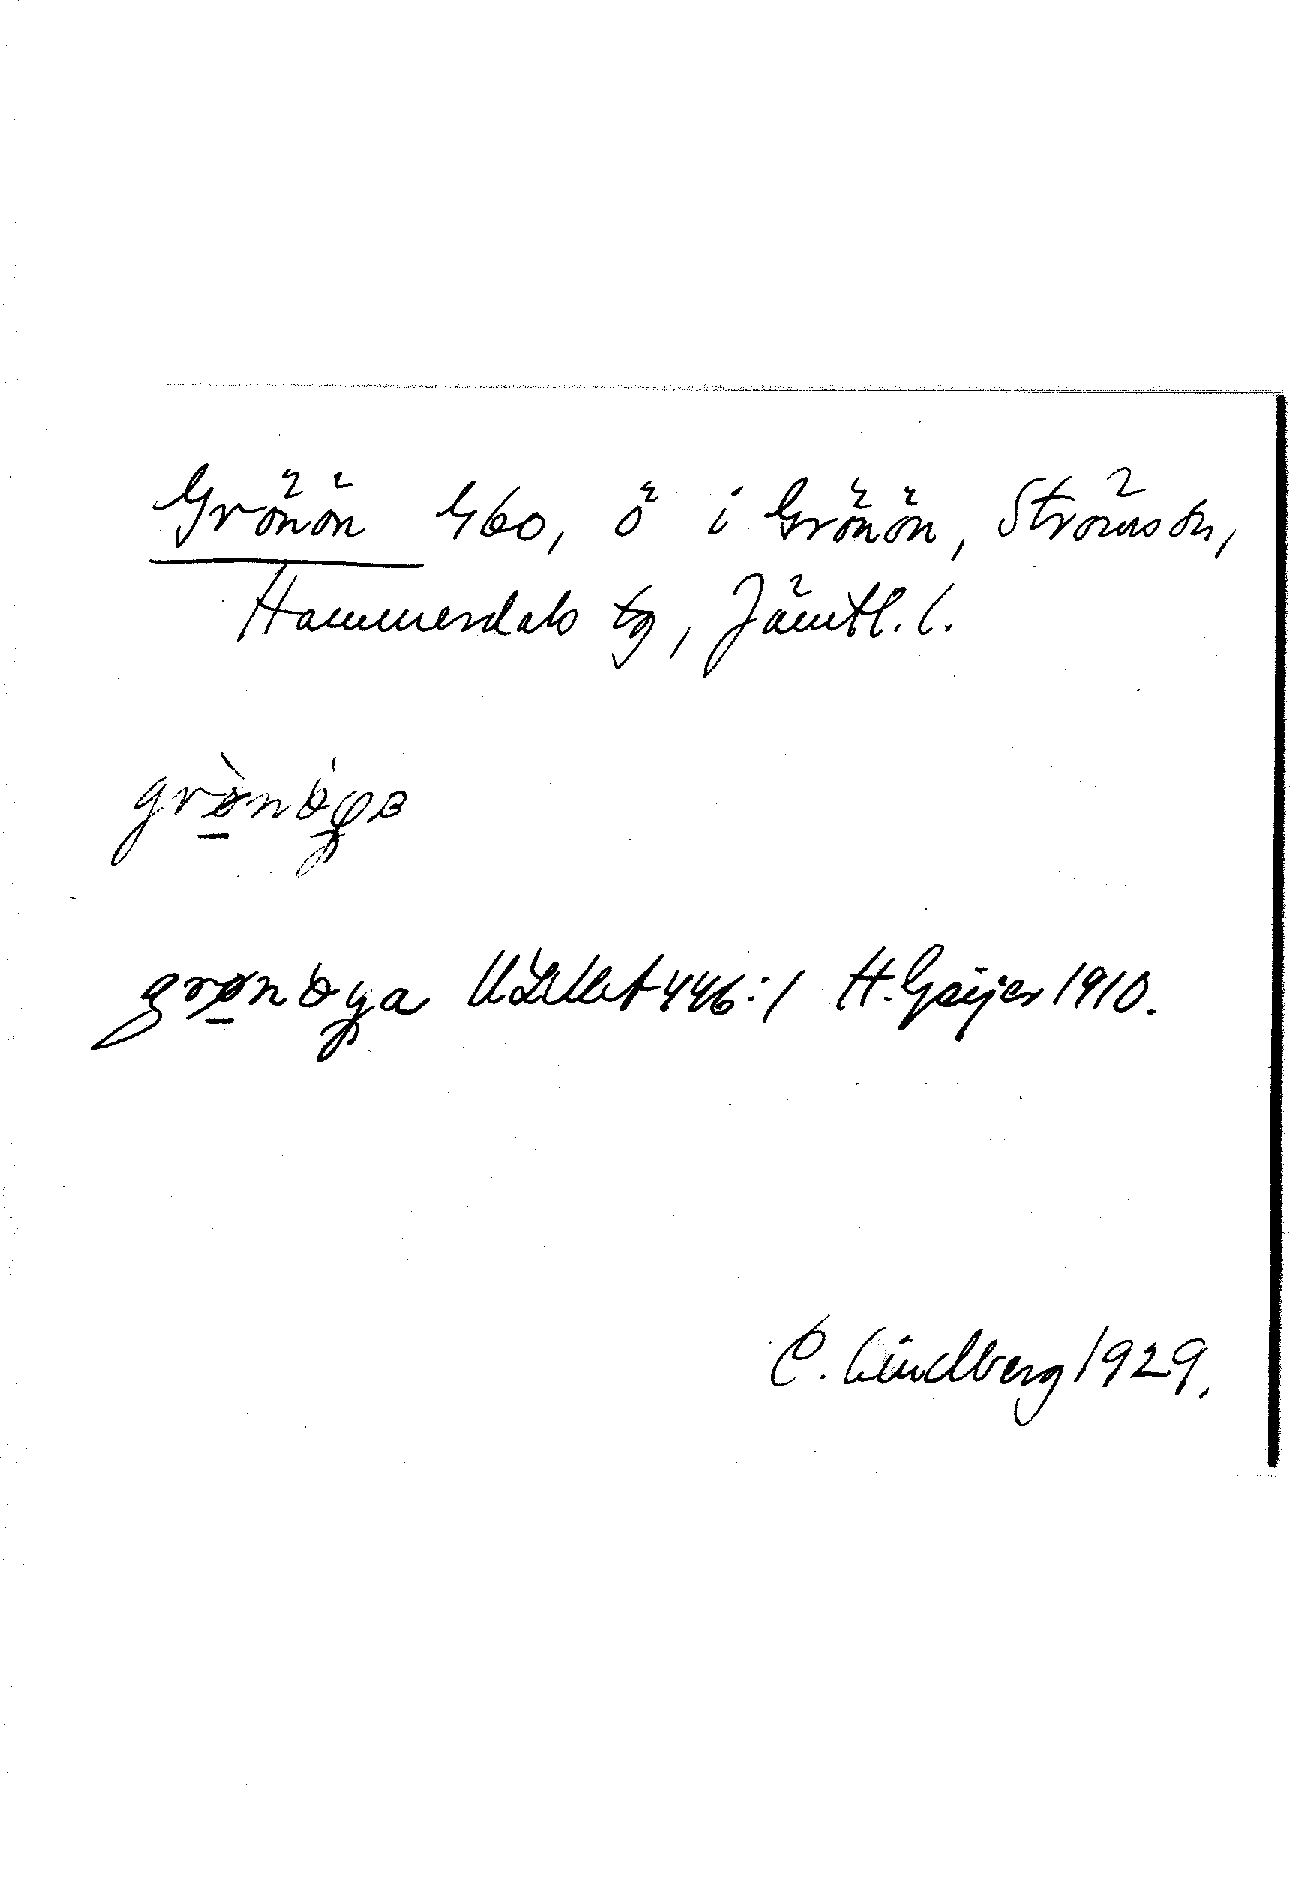 Grönön G60, ö i Grönön, Ströms sn,
Hammerdals tg, Jämtl. l.
grø̀nǿya
grønøya ULMA 446:1 H. Geijer 1910.
C. Lindberg 1929.